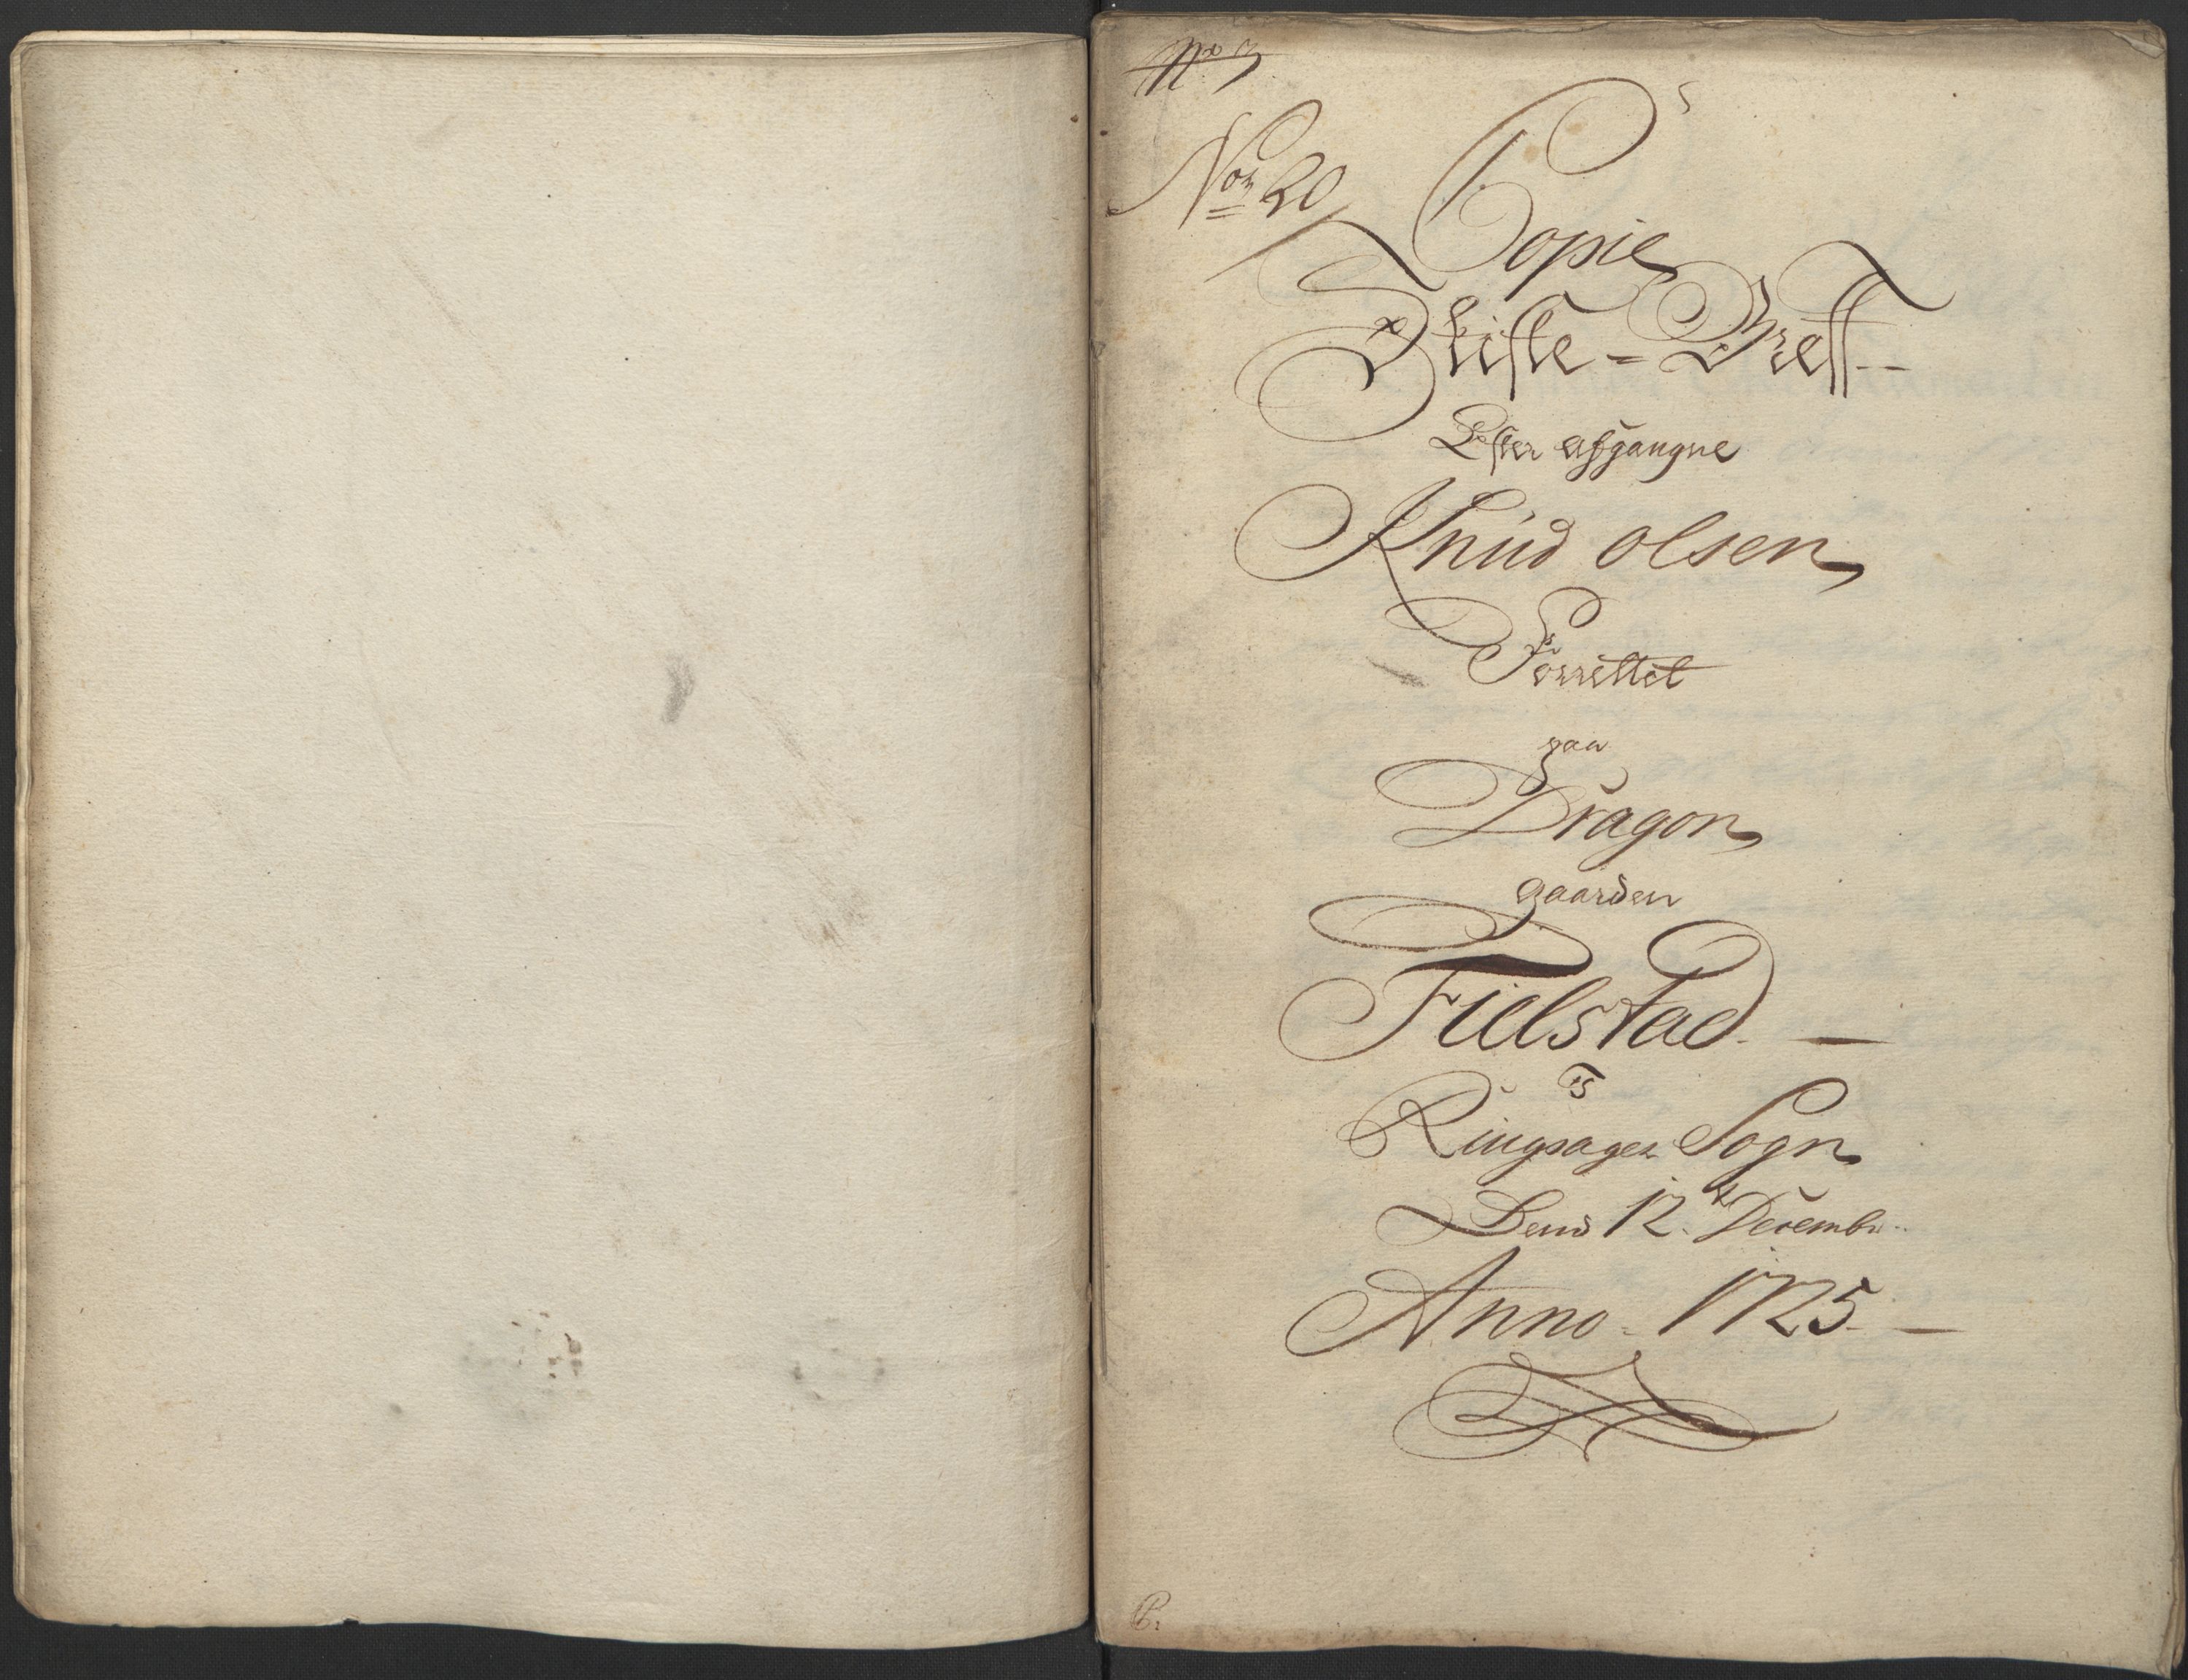 No 3
Nom 20
Copie
Skifte-Breff--
Efter afgangne
Knud olsen
Forrettet
paa
Dragon
gaarden
Fielstad. —
Ringsager Sogn
Dend 12. Decembr..
Anno. 1725. —